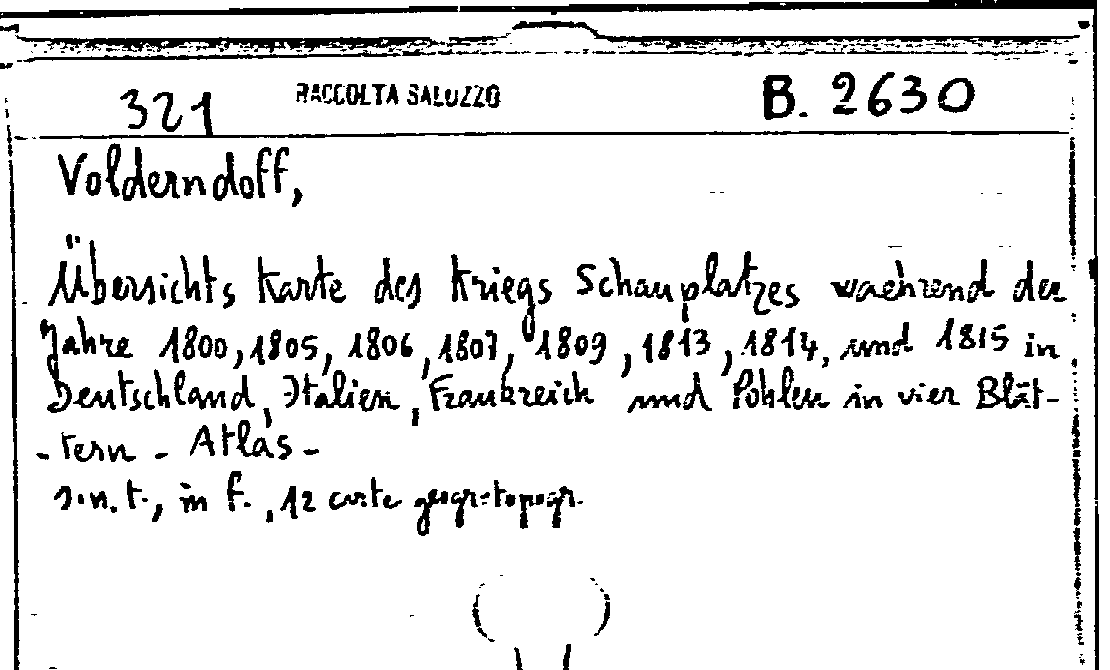 321 RACCOLTA SALUZZO B. 2630
Volderndoff,
Übersichts Karte des Kriegs Schauplatzes waehrend der
Jahre 1800, 1805, 1806, 1807, 1809, 1813, 1814, und 1815 in
Deutschland, Italien, Frankreich und Pohlen in vier Blät-
-tern - Atlas -
s.n.t., in f., 12 carte geogr-topogr.